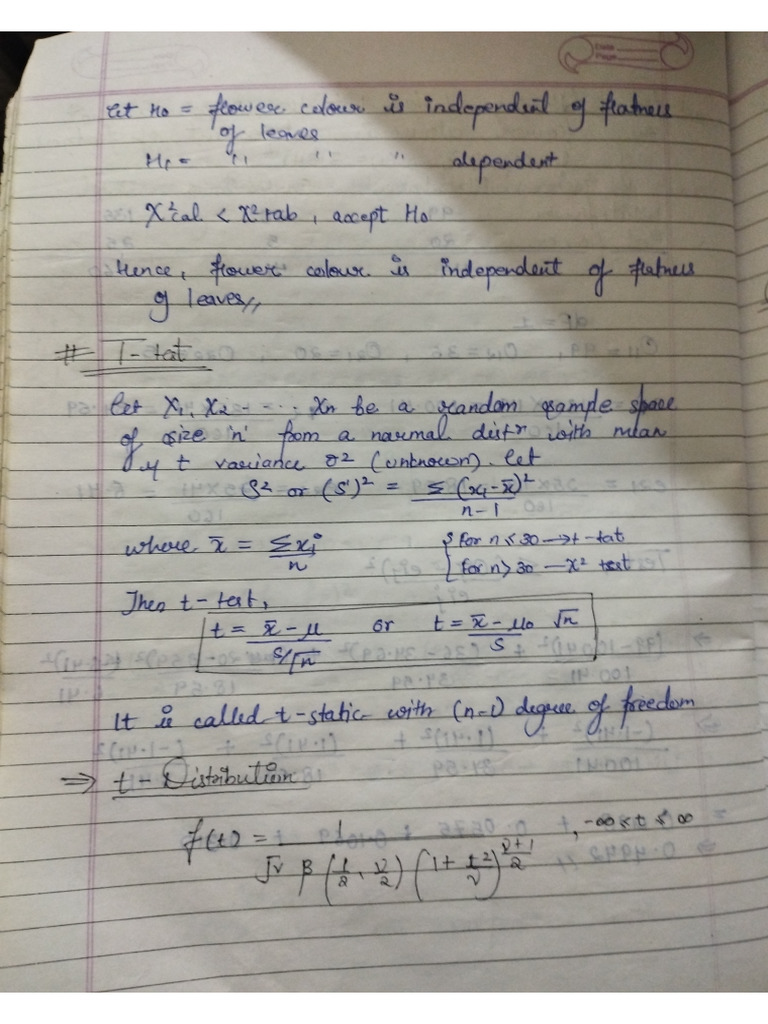 Let H₀ = flower colour is independent of flatness
of leaves
H₁ = " " " dependent
X²cal < X²tab, accept H₀
Hence, flower colour is independent of flatness
of leaves,,
# T-test
Let X₁, X₂ - - . . Xn be a random sample space
of size 'n' from a normal distr with mean
μ & variance σ² (unknown). Let
S² or (S')² = Σ(xi-x̄)² / n-1
where x̄ = Σxi / n { for n ≤ 30 → t-tat
{ for n > 30 — X² test
Then t-test,
t = x̄ - μ / S/√n or t = x̄ - μ₀ / S √n
It is called t-static with (n-1) degree of freedom
⇒ t-Distribution
f(t) = 1 / √ν β(1/2, ν/2) (1 + t²/ν)^(ν+1)/2 , -∞ ≤ t ≤ ∞